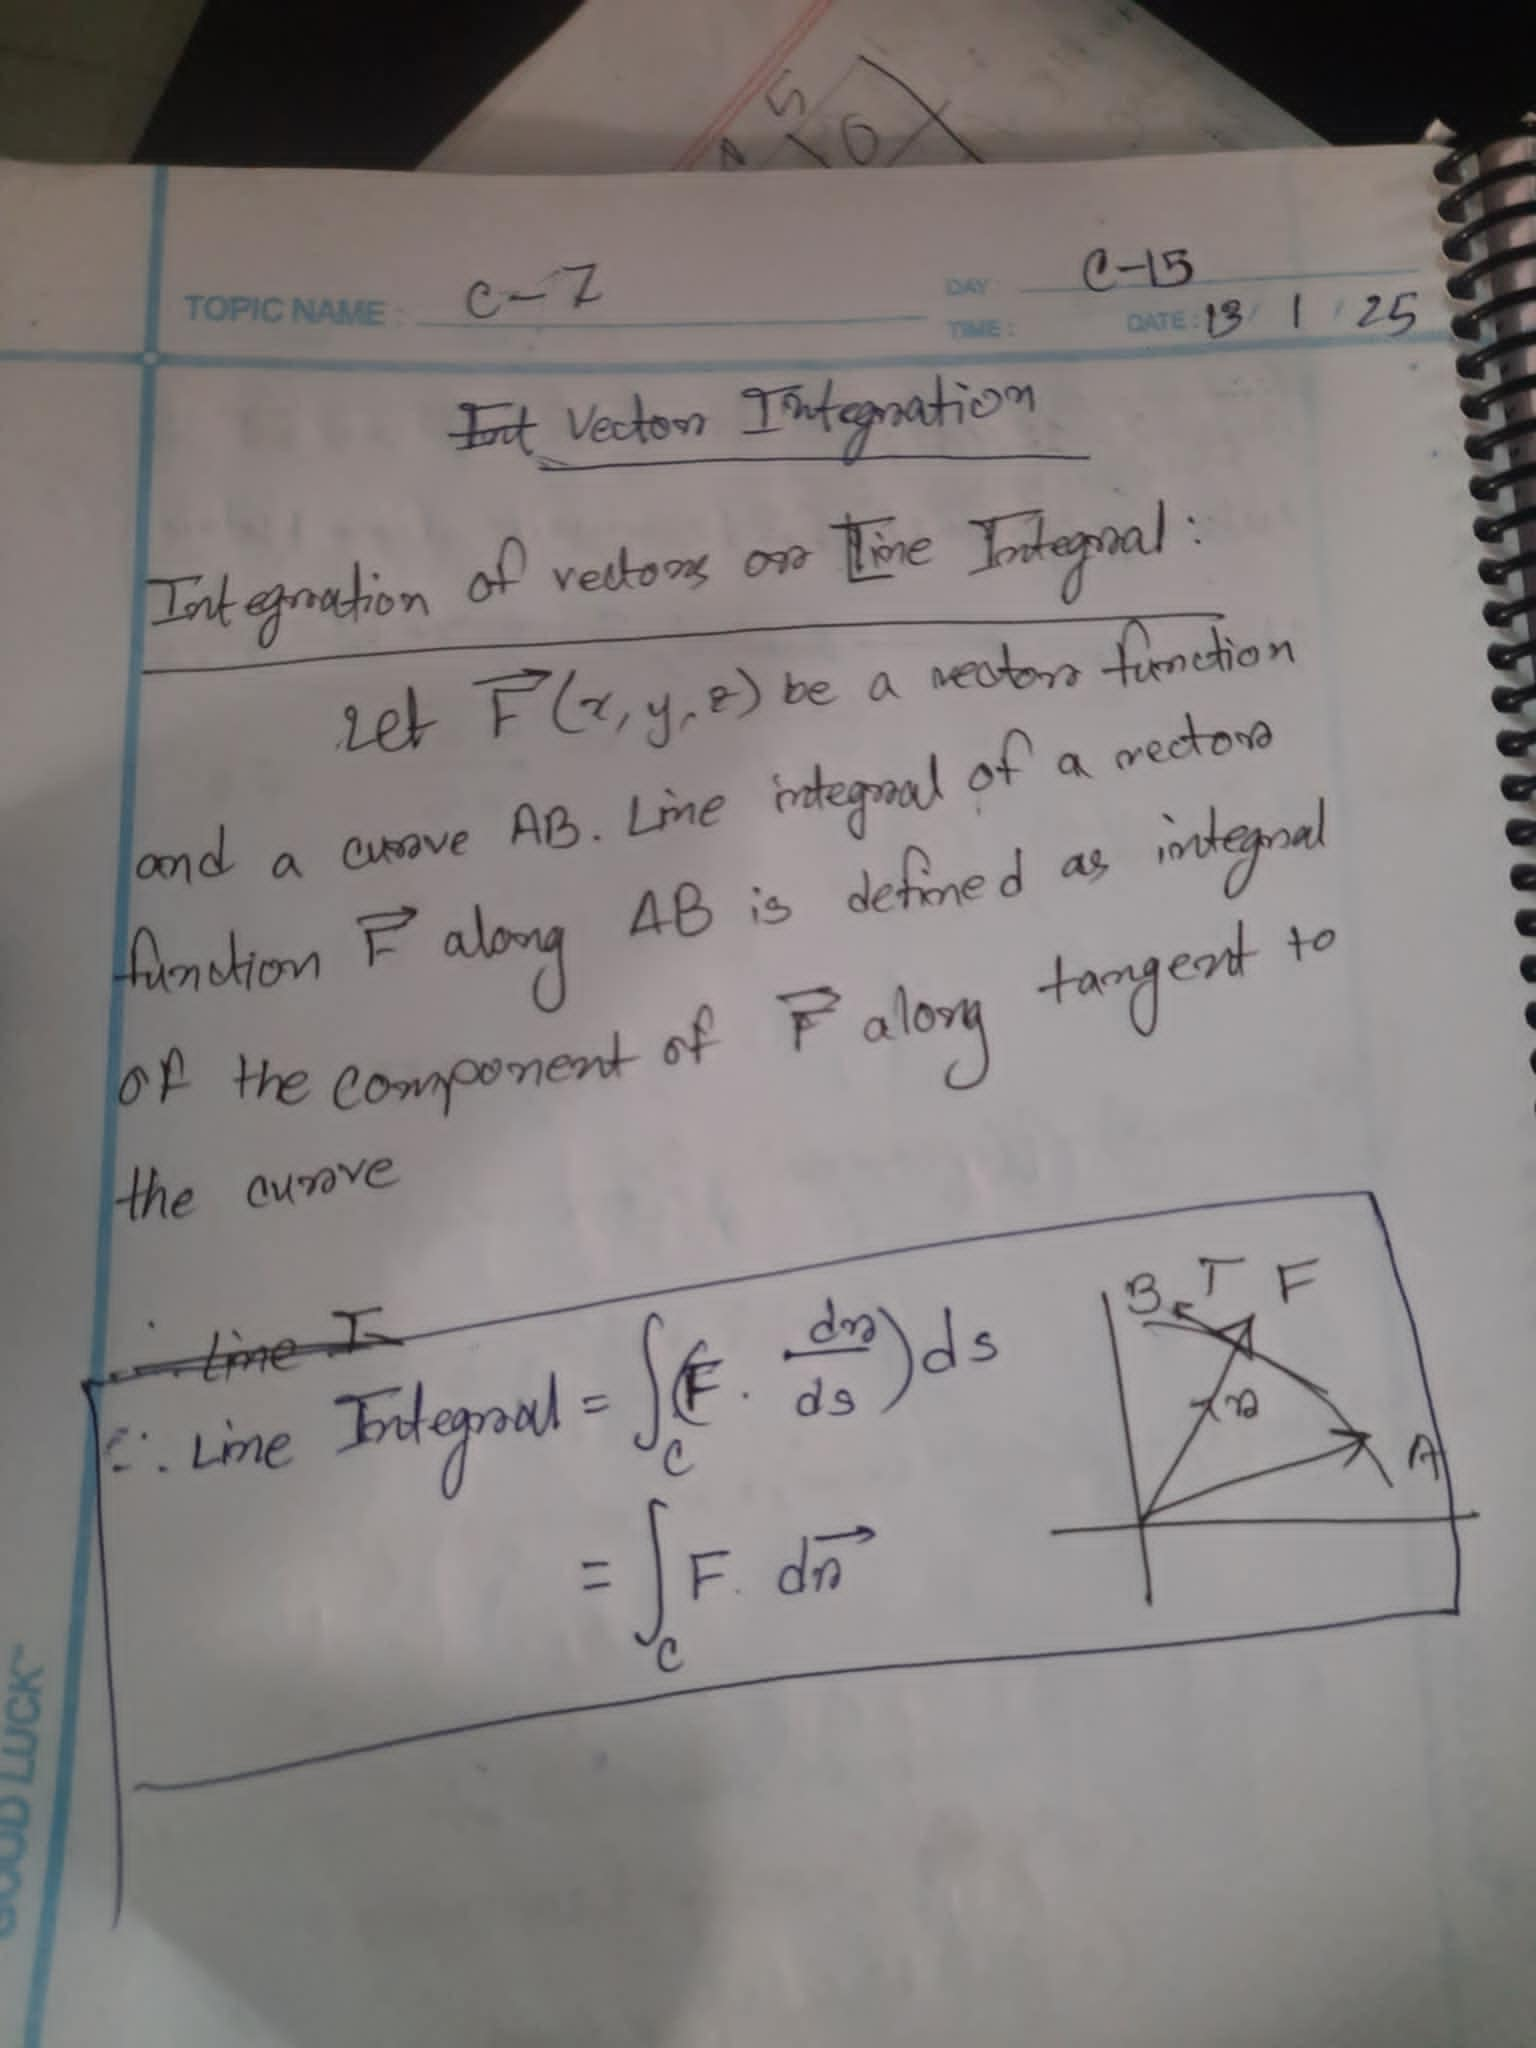 5
0
C-7
C-15
TOPIC NAME :
DAY
TIME :
DATE : 13 / 1 / 25
Int Vector Integration
Integration of vectors or Line Integral :
Let F⃗ (x, y, z) be a vector function
and a curve AB. Line integral of a vector
function F⃗ along AB is defined as integral
of the component of F⃗ along tangent to
the curve
∴ Line I
∴ Line Integral = ∫_C (F . dr/ds) ds
= ∫_C F . dr⃗
B T F
r
A
GOOD LUCK